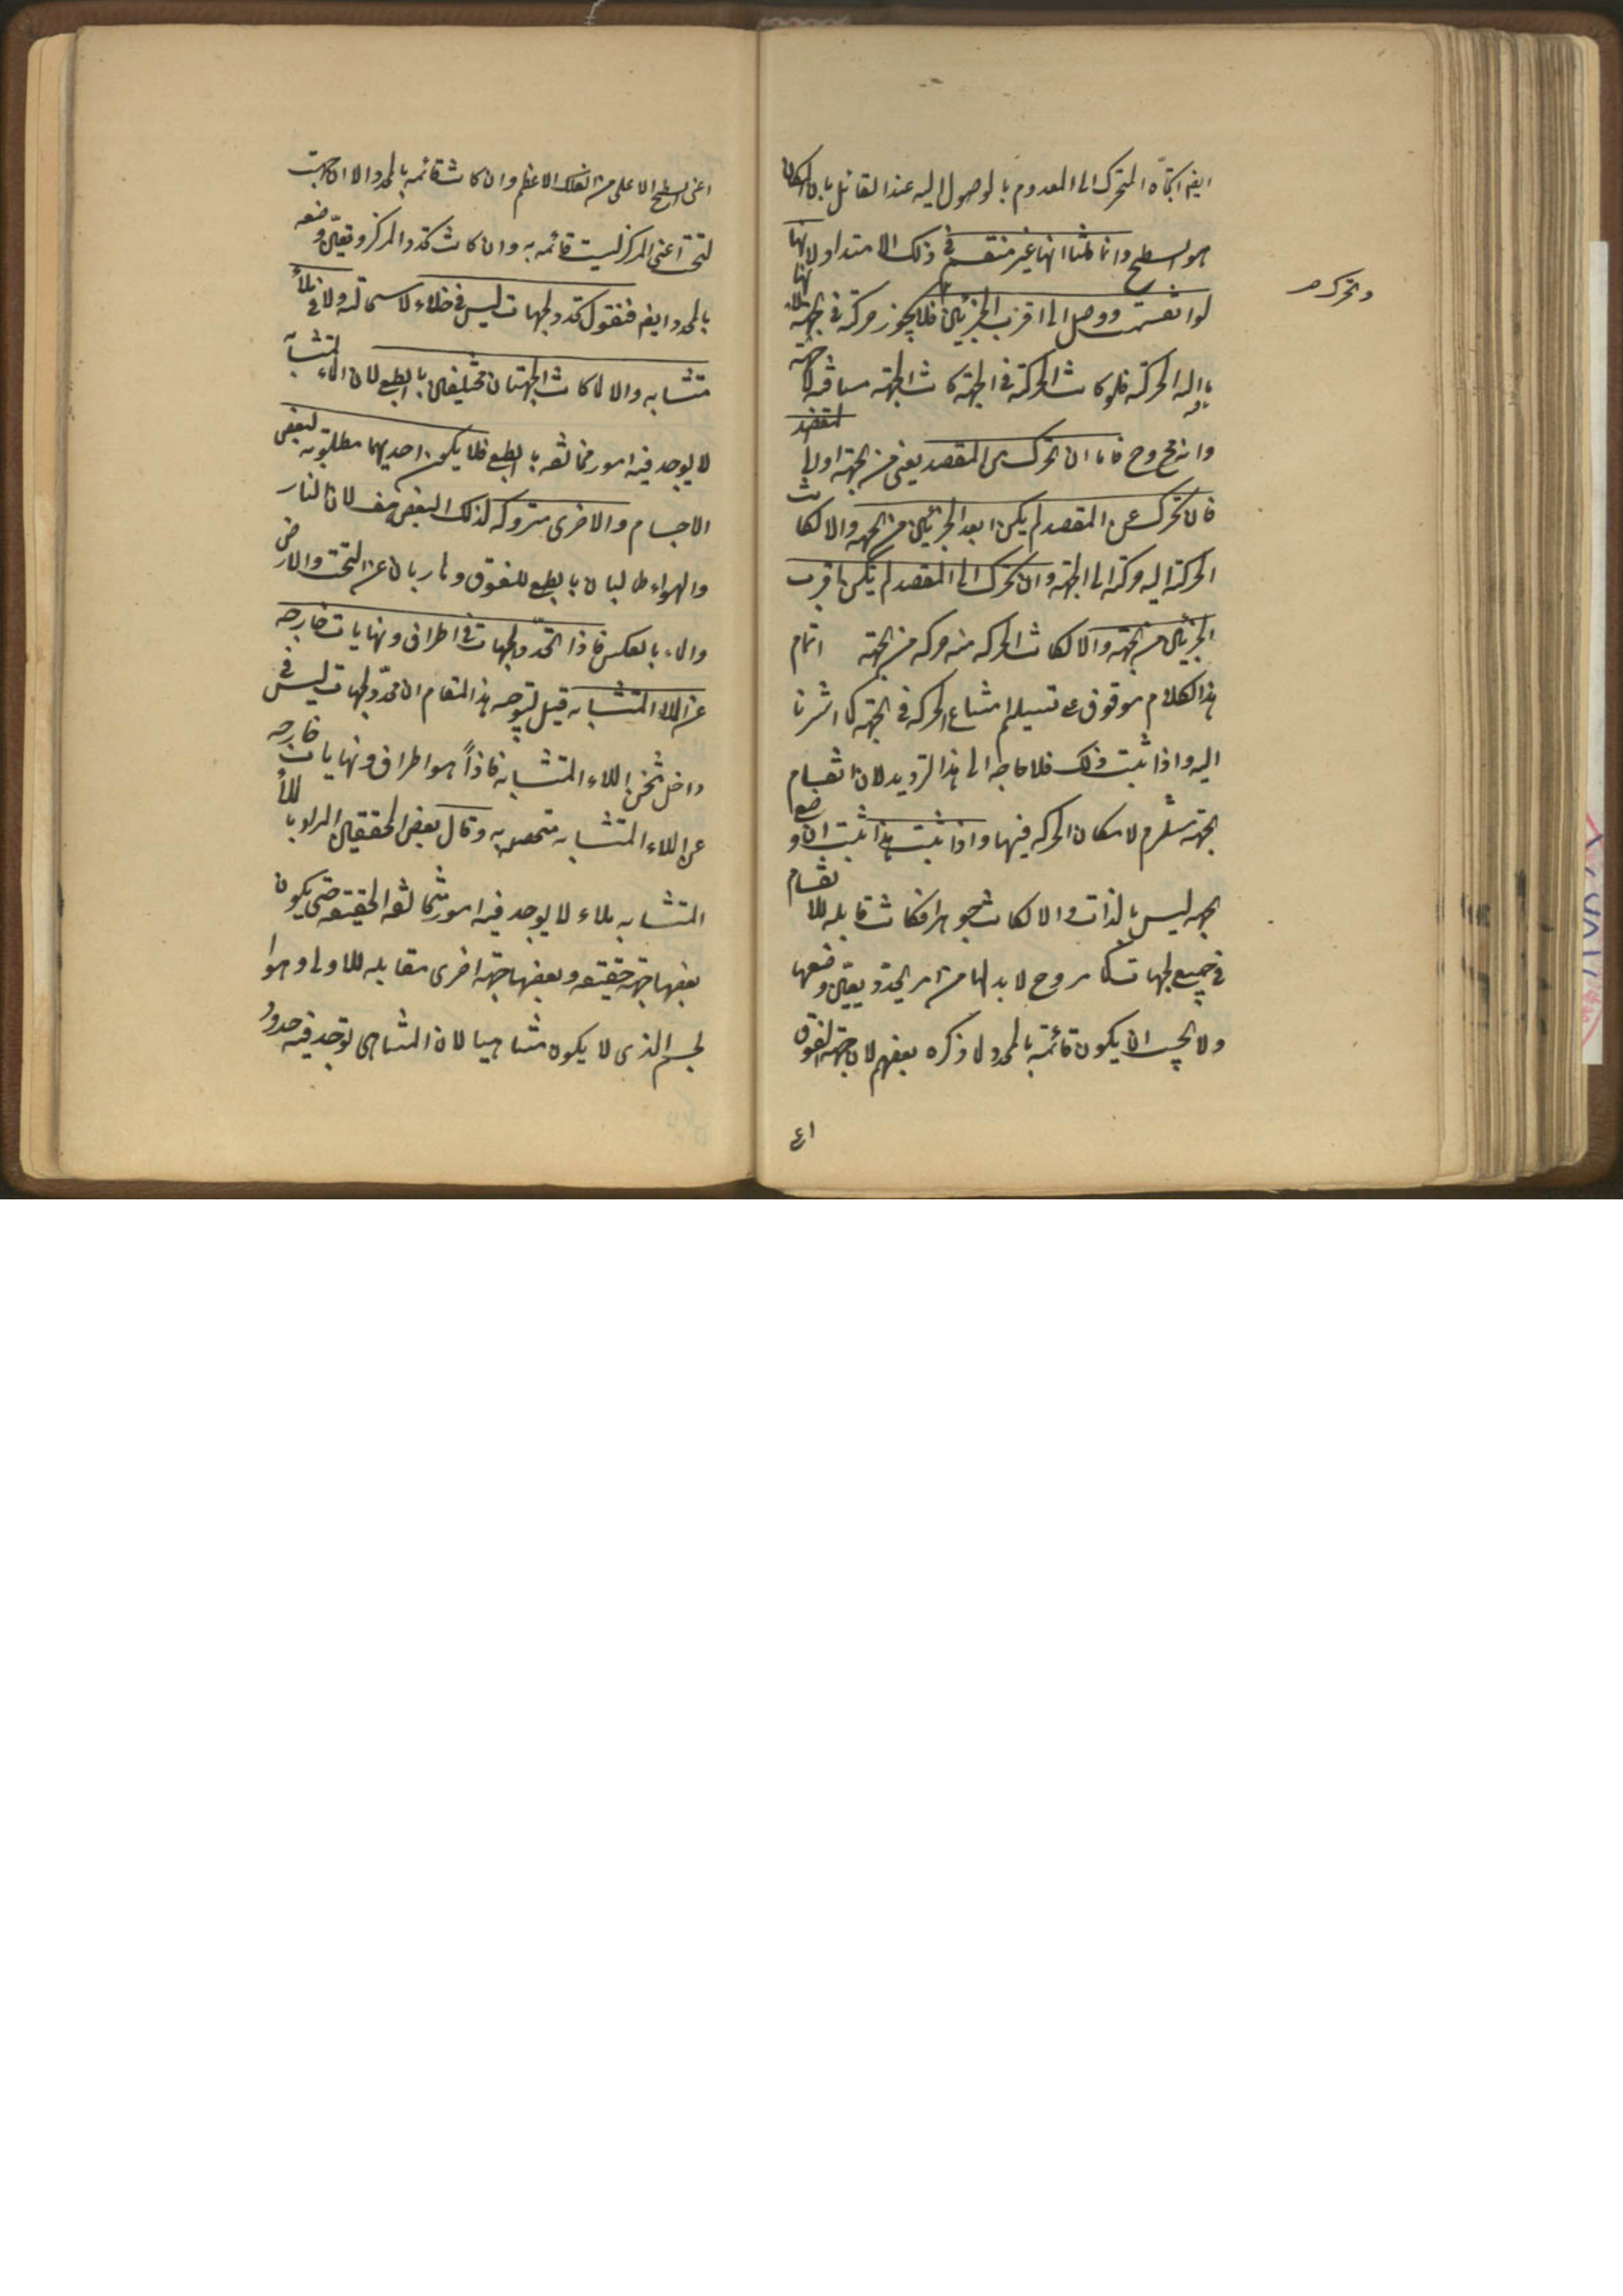 ايضا اتجاه المتحرك الى المعدوم بالوصول اليه عند القائل بان المكان
هو السطح وانما قلنا انها غير منقسمة في ذلك الامتداد لانها
لو انقسمت ووصل الى اقرب الجزئين فلا يجوز حركة في الجهة لانها
ما اليه الحركة فلو كانت الحركة في الجهة كانت الجهة مسافة لا جهة
وانه مح وح فاما ان تحرك عن المقصد يعنى من الجهة او الى المقصد
فان تحرك عن المقصد لم يكن ابعد الجزئين من الجهة والا لكانت
الحركة اليه حركة الى الجهة وان تحرك الى المقصد لم يكن اقرب
الجزئين من الجهة والا لكانت الحركة منه حركة من الجهة اتمام
هذا الكلام موقوف على تسليم امتناع الحركة في الجهة كما اشرنا
اليه واذا ثبت ذلك فلا حاجة الى هذا الترديد لان انقسام
الجهة مستلزم لامكان الحركة فيها واذا ثبت هذا ثبت ان وضع
الجهة ليس بالذات والا لكانت جوهرا فكانت قابلة للانقسام
في جميع الجهات وح لا بد لها من امر يحدد ويعين وضعها
ولا يجب ان يكون قائمة بالمحدد لما ذكره بعضهم لان جهة الفوق
والتحرك
٤١
اعنى السطح الاعلى من الفلك الاعظم وان كانت قائمة بالمحدد الا ان جهة
التحت اعنى المركز ليست قائمة به وان كانت تحدد المركز وتعين وضعه
بالمحدد ايضا فنقول تحدد الجهات ليس في خلاء لاستحالته ولا في ملأ
متشابه والا لما كانت الجهتان مختلفتين بالطبع لان الملاء المتشابه
لا يوجد فيه امور مخالفة بالطبع فلا يكون احديهما مطلوبة لبعض
الاجسام والاخرى متروكة لذلك البعض هف لان النار
والهواء طالبان بالطبع للفوق وهاربان عن التحت والارض
والماء بالعكس فاذا تحدد الجهات في اطراف ونهايات خارجة
عن الملاء المتشابه قيل توجيه هذا المقام ان محدد الجهات ليس في
داخل ثخن الملاء المتشابه فاذاً هو اطراف ونهايات خارجة
عن الملاء المتشابه متحصه به وقال بعض المحققين المراد بالملأ
المتشابه ملاء لا يوجد فيه امور متخالفة الحقيقة حتى يكون
بعضها جهة حقيقة وبعضها جهة اخرى مقابلة للاولى وهو
الجسم الذى لا يكون متناهيا لان المتناهى توجد فيه حدود